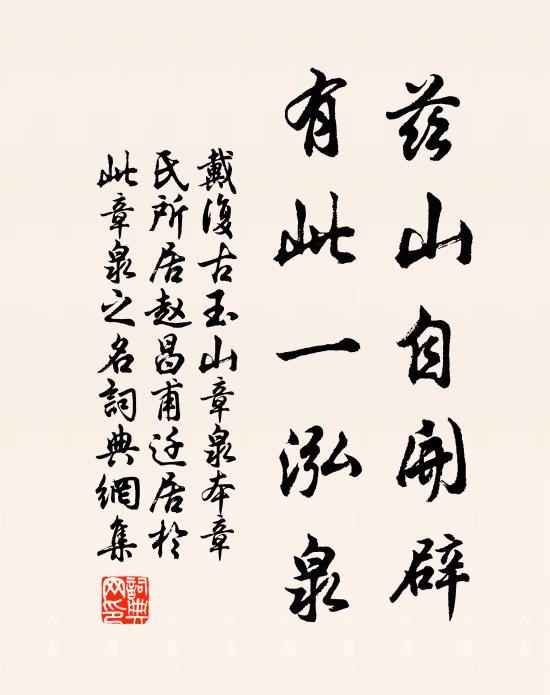 兹山自開辟
有此一泓泉
戴復古玉山章泉本章
氏所居赵昌甫迁居於
此章泉之名詞典網集
詞典網印